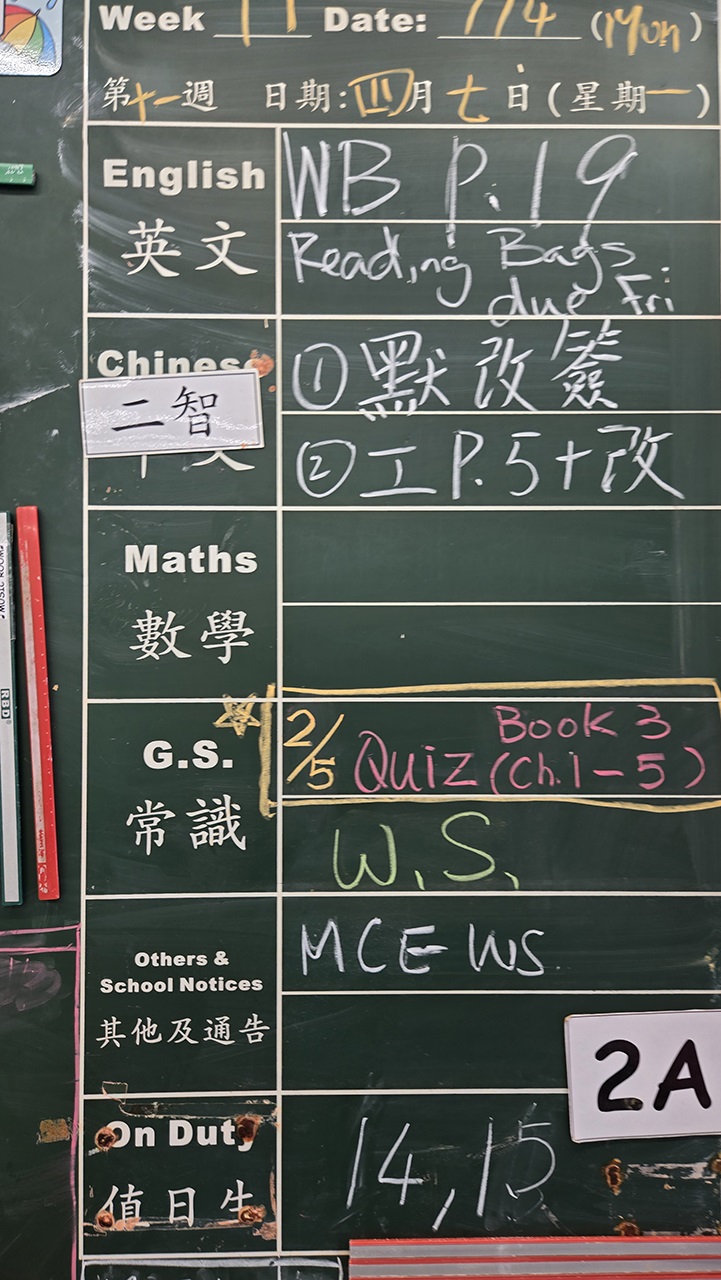 Week 11 Date: 7/4 (Mon)
第十一週 日期:四月七日(星期一)
English WB P.19
英文 Reading Bags
due Fri
Chinese ①默改簽
二智
②工P.5+改
Maths
數學
G.S. 2/5 Quiz Book 3 (Ch.1-5)
常識 W.S.
Others &
School Notices MCE WS
其他及通告
2A
On Duty 14,15
值日生
MUSIC ROOM
RBD